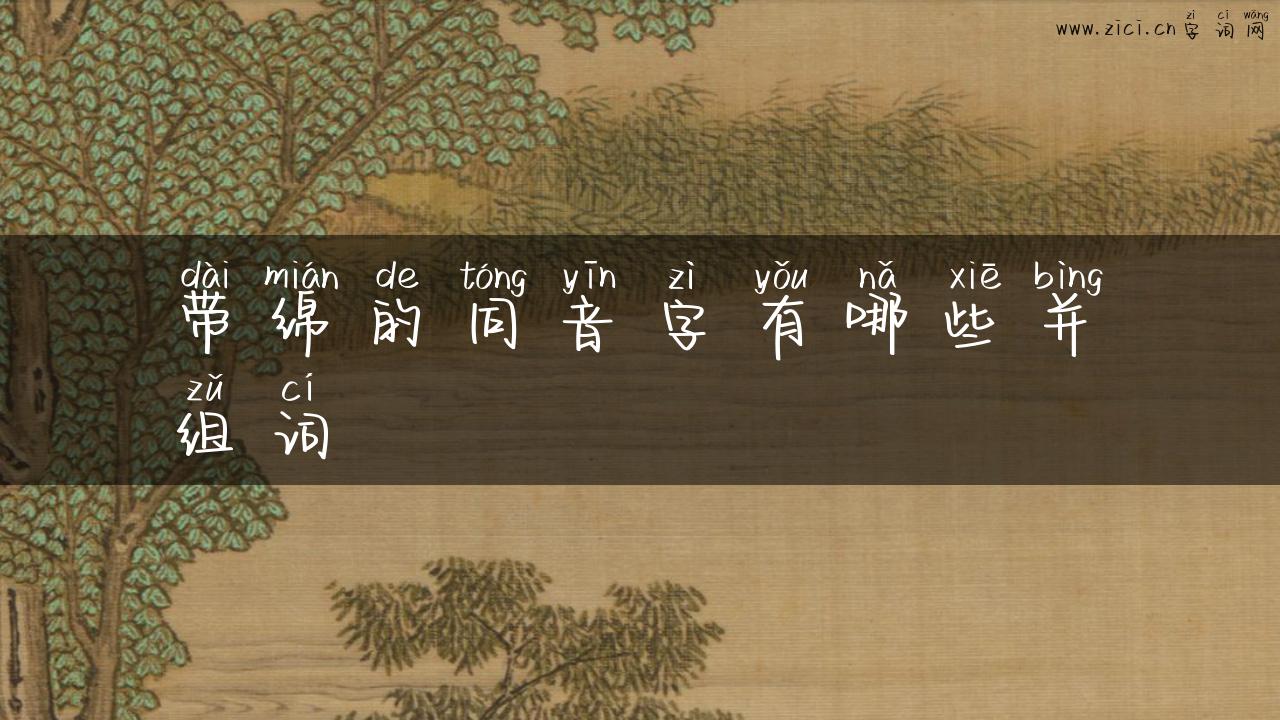 zì cí wǎng
www.zici.cn 字词网
dài mián de tóng yīn zì yǒu nǎ xiē bìng
带绵的同音字有哪些并
zǔ cí
组词